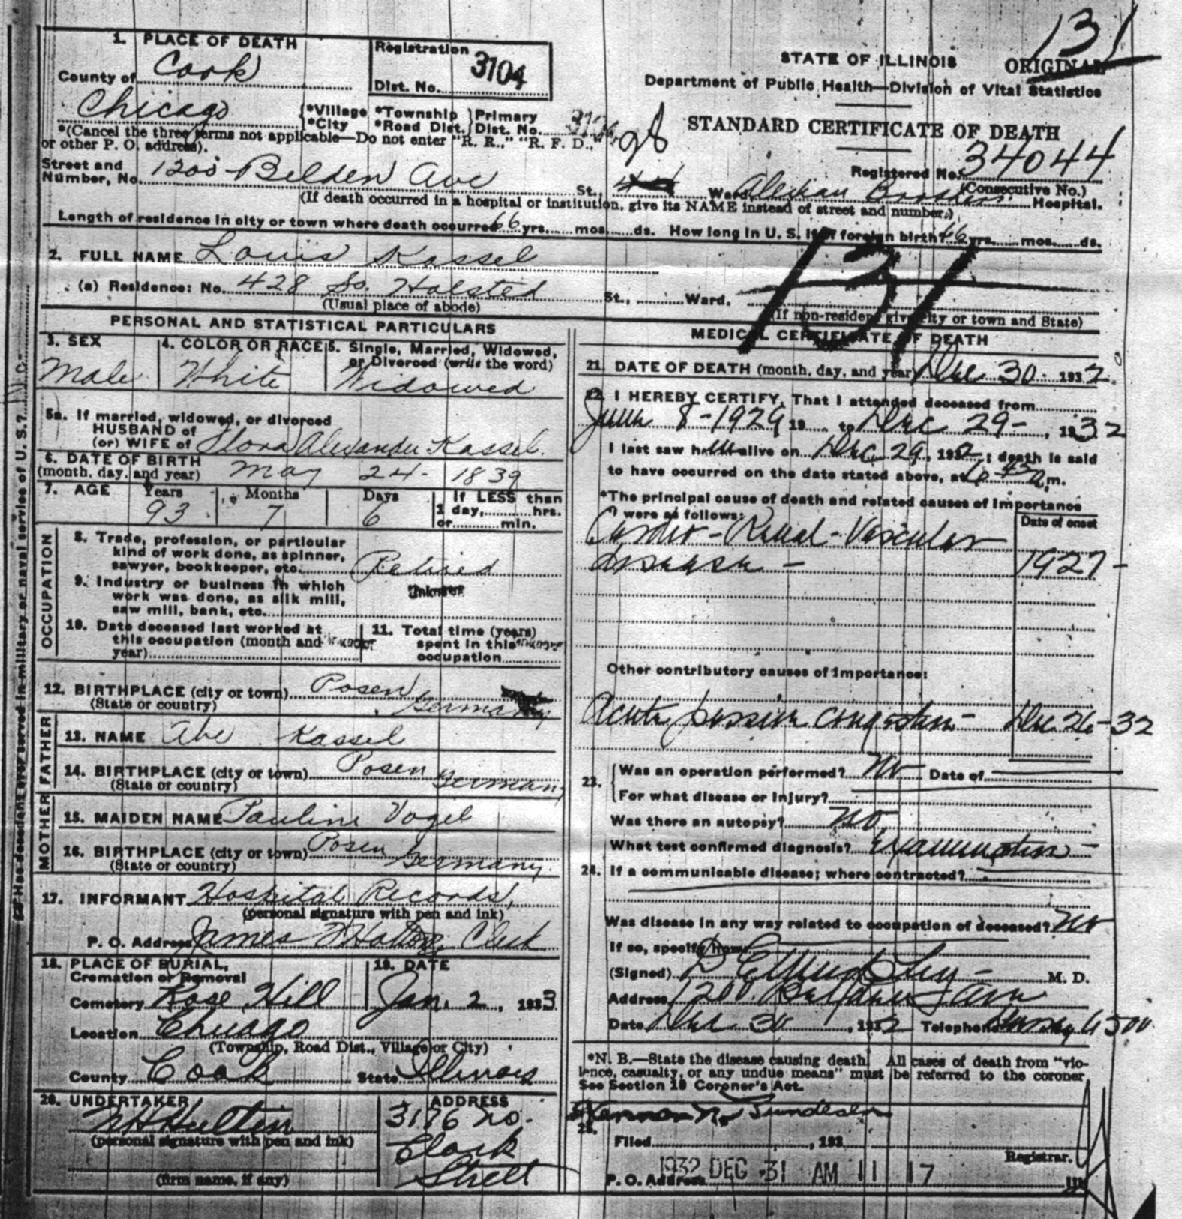 131
1. PLACE OF DEATH
County of Cook
Registration
Dist. No. 3104
STATE OF ILLINOIS ORIGINAL
Department of Public Health—Division of Vital Statistics
Chicago {*Village *Township } Primary
*City *Road Dist. Dist. No.
*(Cancel the three terms not applicable—Do not enter "R. R.," "R. F. D.,"
or other P. O. address).
STANDARD CERTIFICATE OF DEATH
Registered No. 34044
(Consecutive No.)
Street and
Number, No. 1200 Belden Ave St., Ward, Hospital.
(If death occurred in a hospital or institution, give its NAME instead of street and number.)
Length of residence in city or town where death occurred 66 yrs. mos. ds. How long in U. S. if of foreign birth? 66 yrs. mos. ds.
2. FULL NAME Louis Kassel
131
(a) Residence: No. 428 So. Halsted St., Ward,
(Usual place of abode) (If non-resident give city or town and State)
PERSONAL AND STATISTICAL PARTICULARS
3. SEX 4. COLOR OR RACE 5. Single, Married, Widowed,
or Divorced (write the word)
Male White Widowed
5a. If married, widowed, or divorced
HUSBAND of
(or) WIFE of Flora Alexander Kassel
6. DATE OF BIRTH
(month, day, and year) May 24 - 1839
7. AGE Years Months Days If LESS than
1 day, hrs.
93 7 6 or min.
OCCUPATION
8. Trade, profession, or particular
kind of work done, as spinner,
sawyer, bookkeeper, etc. Retired
9. Industry or business in which
work was done, as silk mill,
saw mill, bank, etc. Unknown
10. Date deceased last worked at
this occupation (month and
year)
11. Total time (years)
spent in this
occupation
12. BIRTHPLACE (city or town) Posen
(State or country) Germany
FATHER
13. NAME Abe Kassel
14. BIRTHPLACE (city or town) Posen
(State or country) Germany
MOTHER
15. MAIDEN NAME Pauline Vogel
16. BIRTHPLACE (city or town) Posen
(State or country) Germany
17. INFORMANT Hospital Records,
(personal signature with pen and ink)
P. O. Address James Clerk
18. PLACE OF BURIAL, 19. DATE
Cremation or Removal
Cemetery Rose Hill Jan. 2, 1933
Location Chicago
(Township, Road Dist., Village or City)
County Cook State Illinois
20. UNDERTAKER ADDRESS
3176 No.
(personal signature with pen and ink) Clark
Street
(firm name, if any)
MEDICAL CERTIFICATE OF DEATH
21. DATE OF DEATH (month, day, and year) Dec 30 1932.
22. I HEREBY CERTIFY, That I attended deceased from
June 8 - 1929 19 to Dec 29 -, 1932
I last saw him alive on Dec 29, 1932; death is said
to have occurred on the date stated above, at 6 45 a.m.
*The principal cause of death and related causes of importance
were as follows: Date of onset
Cardio - Renal - Vascular
disease - 1927 -
Other contributory causes of importance:
Acute passive congestion - Dec 26 - 32
23. Was an operation performed? No Date of
For what disease or injury?
Was there an autopsy? No
What test confirmed diagnosis? Examination -
24. If a communicable disease; where contracted?
Was disease in any way related to occupation of deceased? No
If so, specify how
(Signed) M. D.
Address 1200 Belden Ave
Date Dec 30, 1932 Telephone 6500
*N. B.—State the disease causing death. All cases of death from "vio-
lence, casualty, or any undue means" must be referred to the coroner
See Section 10 Coroner's Act.
Herman N. Bundesen
25.
Filed , 193
Registrar.
P. O. Address 1932 DEC 31 AM 11 17